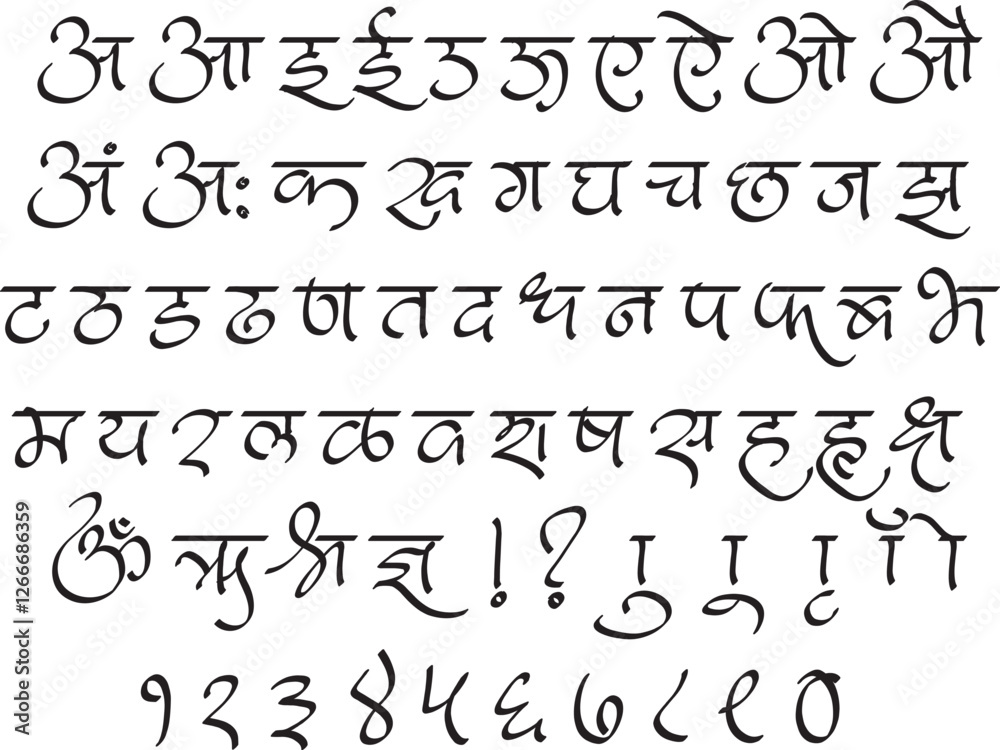 अ आ इ ई उ ऊ ए ऐ ओ औ
अं अः क ख ग घ च छ ज झ
ट ठ ड ढ ण त द ध न प फ ब भ
म य र ल ळ व श ष स ह हृ क्ष
ॐ ऋ श्र ज्ञ ! ? ु ू ृ ॅ ो
१ २ ३ ४ ५ ६ ७ ८ ९ ०
Adobe Stock | #1266686359